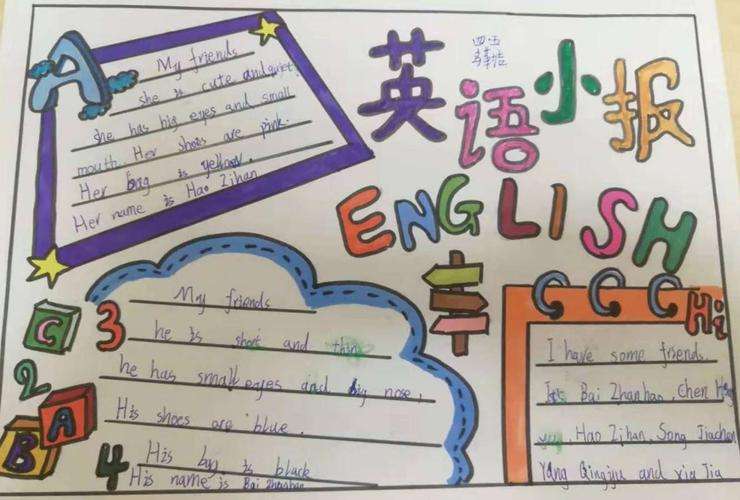 A
My friends
she is cute and quiet.
she has big eyes and small
mouth. Her shoes are pink.
Her bag is yellow.
Her name is Hao Zihan
四·五
英语小报
ENGLISH
C
3
2
A
B
4
My friends
he is short and thin
he has small eyes and big nose.
His shoes are blue.
His bag is black
His name is Bai Zhanhao
Hi
I have some friends.
Bai Zhanhao, Chen
Hao Zihan, Song Jiachen
Yang Qingyu and xia Jia